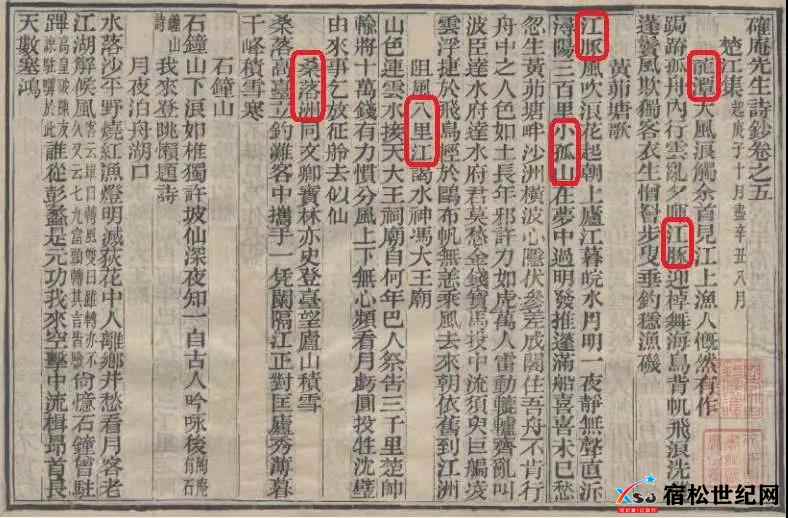 確庵先生詩鈔卷之五
楚江集 起庚子十月盡辛丑八月
龍潭大風浪觸余首見江上漁人慨然有作
跼蹐孤舟內行雲亂夕暉江豚迎棹舞海鳥背帆飛浪洗
蓬鬢風欺獨客衣生憎罾步叟垂釣穩漁磯
黃茆塘歌
江豚風吹浪花起朝上廬江暮皖水門明一夜靜無聲直泝
潯陽三百里小孤山在夢中過明發推蓬滿船喜喜未已愁
忽生黃茆塘畔沙洲橫波心隱伏參差成閣住吾舟不肯行
舟中之人色如土長年邪許力如虎萬人雷動轆轤齊亂叫
波臣達水府達水府君莫愁金錢寶馬投中流須臾巨艑凌
雲浮捷於飛鳥輕於鷗布帆無恙乘風去來朝依舊到江洲
阻風八里江謁水神馮大王廟
山色連雲水接天大王祠廟自何年巴人祭告三千里楚帥
輸將十萬錢有力慣分風上下無心頻看月虧圓投牲沈璧
由來事乞放征舲去似仙
桑落洲同文卿寶林亦史登臺望廬山積雪
桑落高臺立釣難客中攜手一凭闌隔江正對匡廬秀薄暮
千峰積雪寒
石鐘山
石鐘山下浪如椎獨許坡仙深夜知一自古人吟咏後 陶庵有石
鐘山詩 我來登眺嬾題詩
月夜泊舟湖口
水落沙平野燒紅漁燈明滅荻花中人離鄉井愁看月客老
江湖解候風 客云單日轉風雙日雖轉亦不久又云七九當頭轉其言皆驗 尚憶石鐘曾駐
蹕 高皇破陳友諒駐驆於此 誰從彭蠡是元功我來空擊中流楫昂首長
天數塞鴻
宿松世纪网